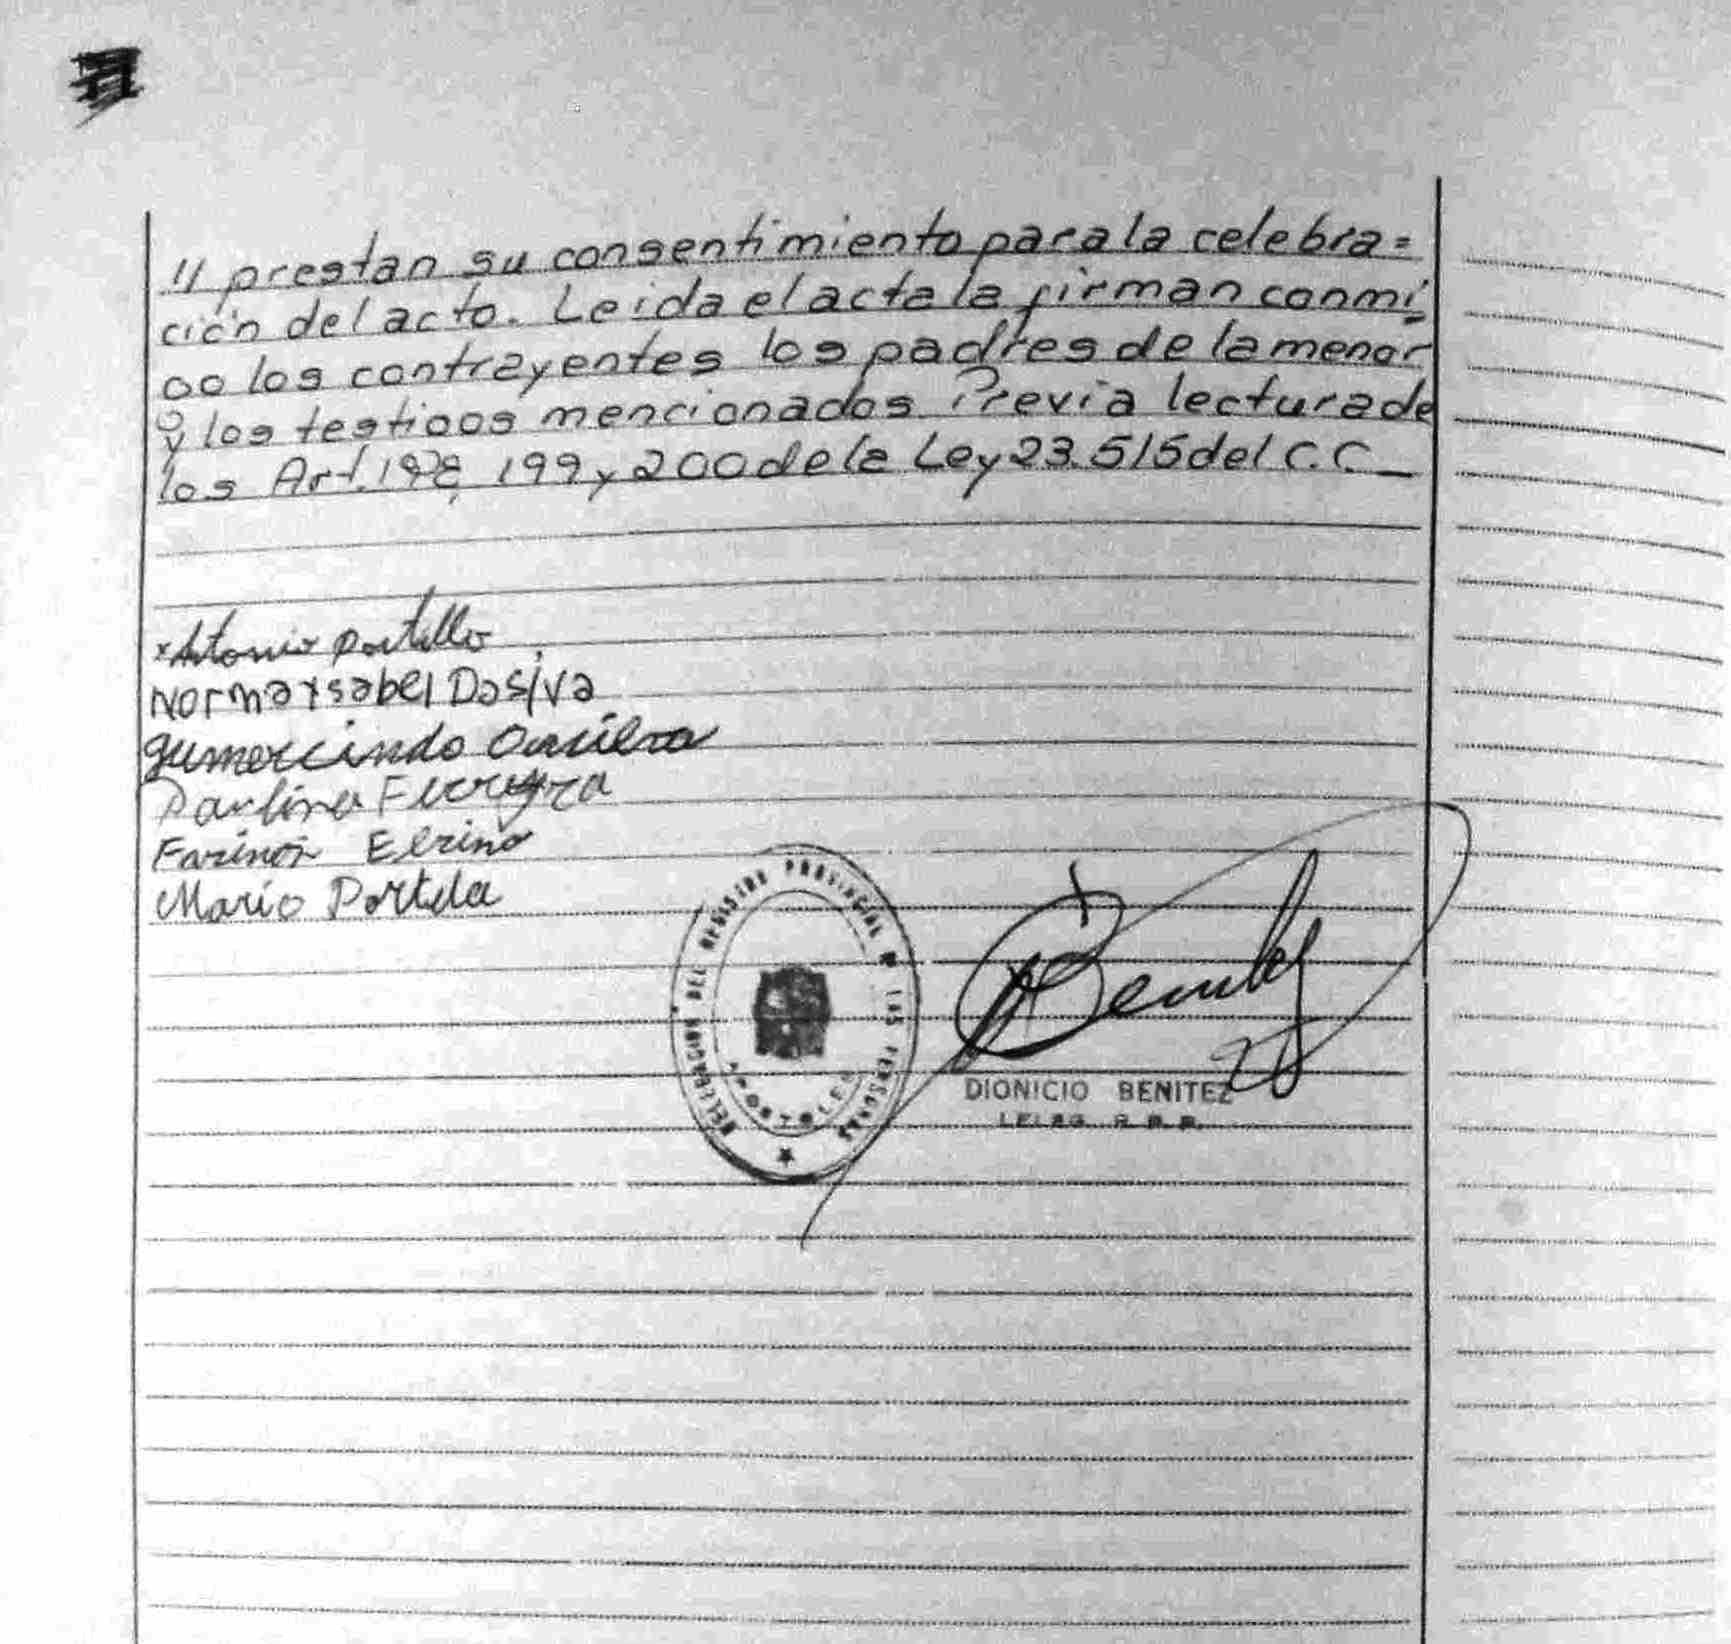 // prestan su consentimiento para la celebra=
ción del acto. Leida el acta la firman conmi
go los contrayentes los padres de la menor
y los testigos mencionados. Previa lectura de
los Art. 198, 199 y 200 de la Ley 23.515 del C.C.
x Antonio Portillo
Norma Ysabel Dasiva
Gumercindo
Ferreyra
Mario
DELEGACION DEL REGISTRO PROVINCIAL DE LAS PERSONAS
APOSTOLES
Benitez
DIONICIO BENITEZ